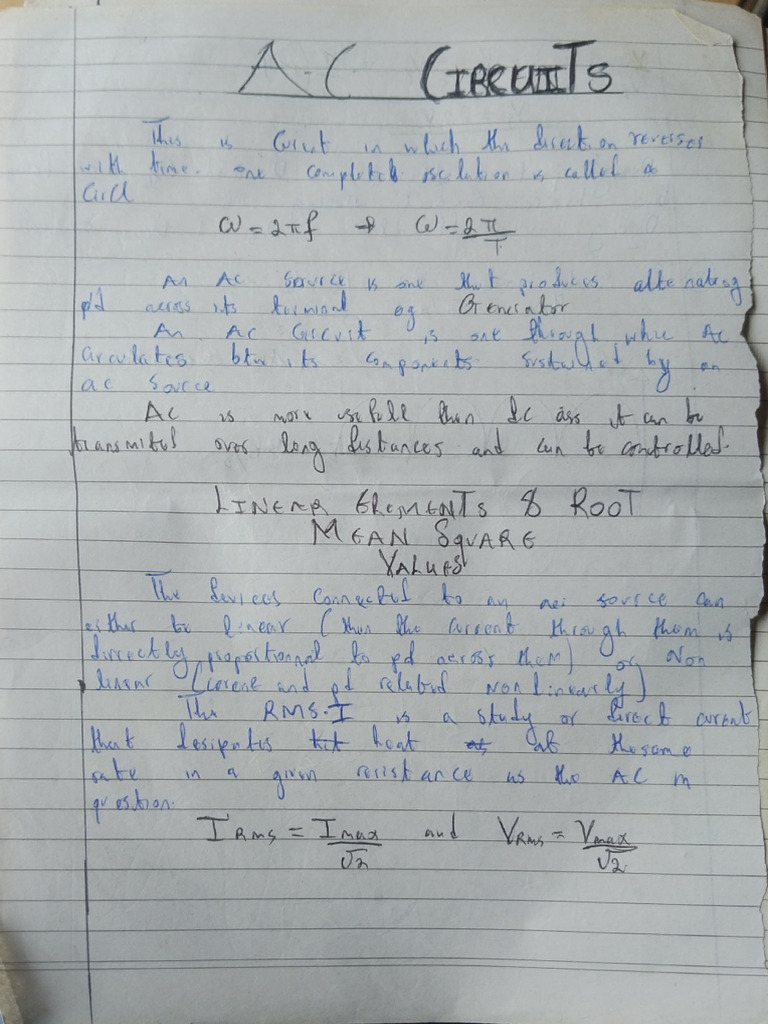 A.C CIRCUITS
This is Circuit in which the direction reverses
with time. one complete oscilation is called a
Circl
ω = 2πf → ω = 2π/T
An AC source is one that produces alternating
pd across its terminal eg Generator
An AC Circuit is one through whic AC
circulates btw its components sustained by an
ac source
AC is more usefull then dc ass it can be
transmited over long distances and can be controlled.
LINEAR ELEMENTS & ROOT
MEAN SQUARE
VALUES
The devices connected to an source can
either be linear (then the current through them is
directly proportionnal to pd across them) or Non
linear (corent and pd related non linearly)
The RMS.I is a study or direct current
that desipates heat at thesame
rate in a given resistance as the AC in
question.
I RMS = Imax/√2 and VRMS = Vmax/√2